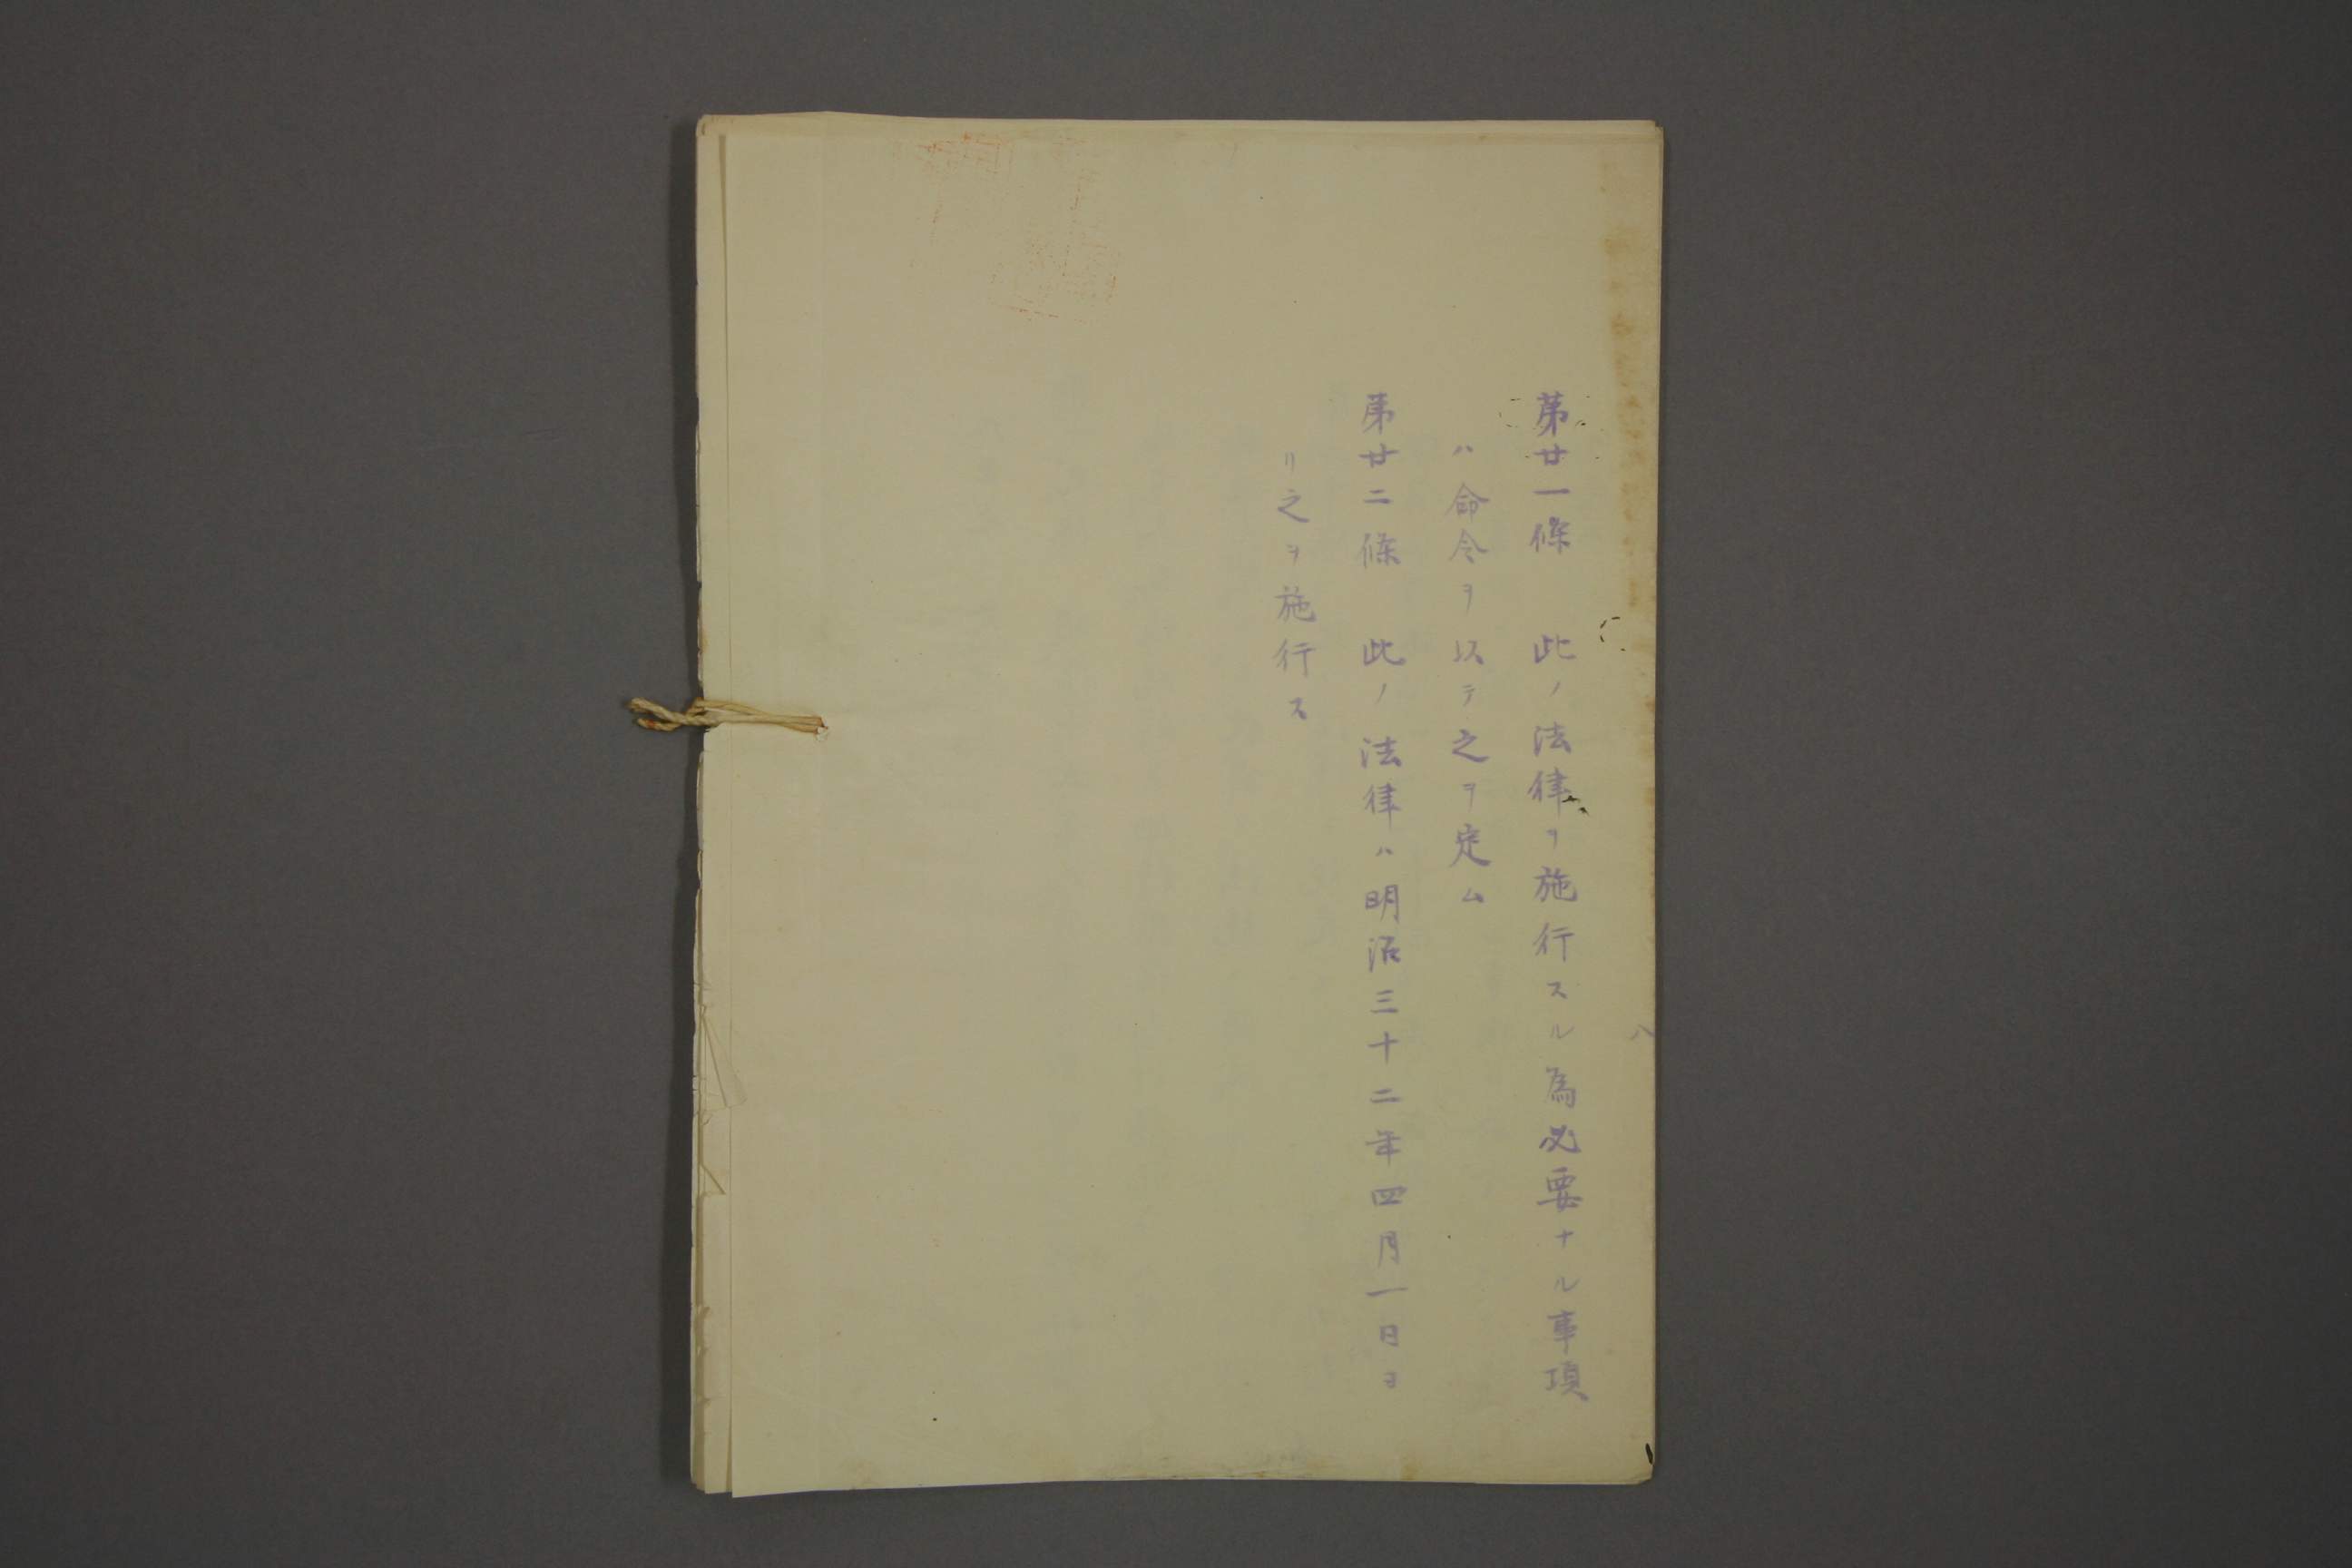 第廿一條　此ノ法律ヲ施行スル為必要ナル事項
ハ命令ヲ以テ之ヲ定ム
第廿二條　此ノ法律ハ明治三十二年四月一日ヨ
リ之ヲ施行ス
八